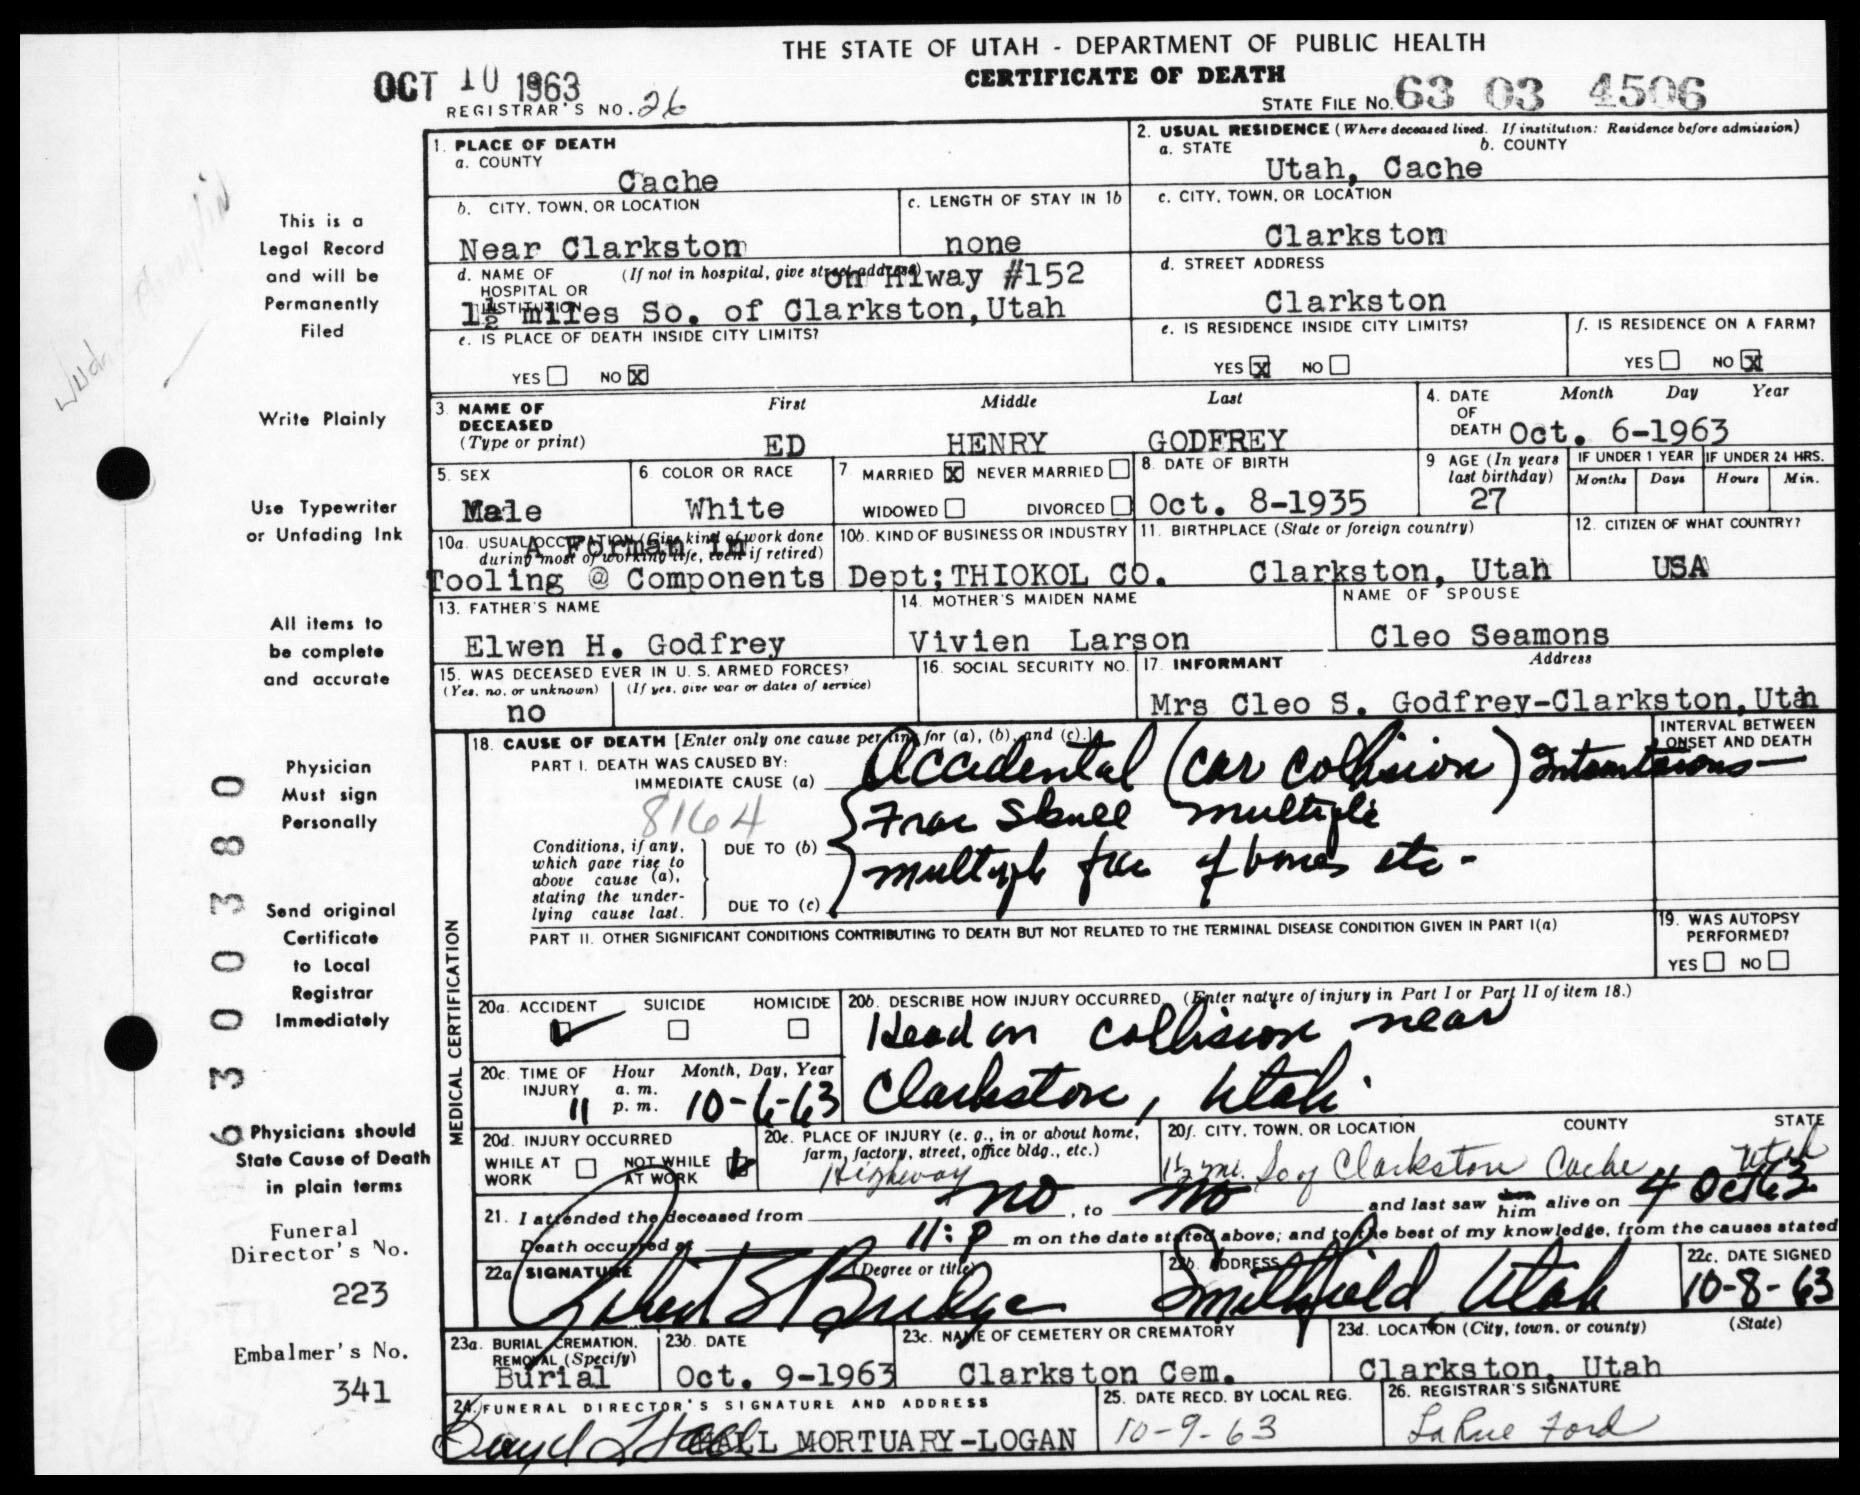 THE STATE OF UTAH - DEPARTMENT OF PUBLIC HEALTH
CERTIFICATE OF DEATH
OCT 10 1963
REGISTRAR'S NO. 26
STATE FILE NO. 63 03 4506
This is a
Legal Record
and will be
Permanently
Filed
Write Plainly
Use Typewriter
or Unfading Ink
All items to
be complete
and accurate
Physician
Must sign
Personally
Send original
Certificate
to Local
Registrar
Immediately
Physicians should
State Cause of Death
in plain terms
Funeral
Director's No.
223
Embalmer's No.
341
6300380
1. PLACE OF DEATH
a. COUNTY
Cache
b. CITY, TOWN, OR LOCATION
Near Clarkston
c. LENGTH OF STAY IN 1b
none
d. NAME OF HOSPITAL OR INSTITUTION (If not in hospital, give street address)
on Hiway #152
1½ miles So. of Clarkston, Utah
e. IS PLACE OF DEATH INSIDE CITY LIMITS?
YES NO X
2. USUAL RESIDENCE (Where deceased lived. If institution: Residence before admission)
a. STATE b. COUNTY
Utah, Cache
c. CITY, TOWN, OR LOCATION
Clarkston
d. STREET ADDRESS
Clarkston
e. IS RESIDENCE INSIDE CITY LIMITS?
YES X NO
f. IS RESIDENCE ON A FARM?
YES NO X
3. NAME OF DECEASED (Type or print)
First Middle Last
ED HENRY GODFREY
4. DATE OF DEATH Month Day Year
Oct. 6-1963
5. SEX
Male
6. COLOR OR RACE
White
7. MARRIED X NEVER MARRIED
WIDOWED DIVORCED
8. DATE OF BIRTH
Oct. 8-1935
9 AGE (In years last birthday)
27
IF UNDER 1 YEAR
Months Days
IF UNDER 24 HRS.
Hours Min.
10a. USUAL OCCUPATION (Give kind of work done during most of working life, even if retired)
A Forman in
Tooling @ Components
10b. KIND OF BUSINESS OR INDUSTRY
Dept; THIOKOL CO.
11. BIRTHPLACE (State or foreign country)
Clarkston, Utah
12. CITIZEN OF WHAT COUNTRY?
USA
13. FATHER'S NAME
Elwen H. Godfrey
14. MOTHER'S MAIDEN NAME
Vivien Larson
NAME OF SPOUSE
Cleo Seamons
15. WAS DECEASED EVER IN U. S. ARMED FORCES?
(Yes, no, or unknown) (If yes, give war or dates of service)
no
16. SOCIAL SECURITY NO.
17. INFORMANT Address
Mrs Cleo S. Godfrey-Clarkston, Utah
MEDICAL CERTIFICATION
18. CAUSE OF DEATH [Enter only one cause per line for (a), (b), and (c).]
PART I. DEATH WAS CAUSED BY:
IMMEDIATE CAUSE (a) Accidental (car collision)
INTERVAL BETWEEN ONSET AND DEATH
8164
Conditions, if any, which gave rise to above cause (a), stating the underlying cause last.
DUE TO (b) Frac Skull multiple
DUE TO (c) multiple frac of bones etc -
PART II. OTHER SIGNIFICANT CONDITIONS CONTRIBUTING TO DEATH BUT NOT RELATED TO THE TERMINAL DISEASE CONDITION GIVEN IN PART I(a)
19. WAS AUTOPSY PERFORMED?
YES NO
20a. ACCIDENT SUICIDE HOMICIDE
20b. DESCRIBE HOW INJURY OCCURRED. (Enter nature of injury in Part I or Part II of item 18.)
Head on collision near
Clarkston, Utah
20c. TIME OF INJURY Hour a. m. p. m. Month, Day, Year
11 10-6-63
20d. INJURY OCCURRED
WHILE AT WORK NOT WHILE AT WORK
20e. PLACE OF INJURY (e. g., in or about home, farm, factory, street, office bldg., etc.)
Highway
20f. CITY, TOWN, OR LOCATION COUNTY STATE
1½ mi. So of Clarkston Cache Utah
21. I attended the deceased from no, to no and last saw him alive on 4 Oct 63
Death occurred at 11:P m on the date stated above; and to the best of my knowledge, from the causes stated
22a SIGNATURE (Degree or title)
Robert S Budge
22b. ADDRESS
Smithfield, Utah
22c. DATE SIGNED
10-8-63
23a. BURIAL, CREMATION, REMOVAL (Specify)
Burial
23b. DATE
Oct. 9-1963
23c. NAME OF CEMETERY OR CREMATORY
Clarkston Cem.
23d. LOCATION (City, town, or county) (State)
Clarkston, Utah
24. FUNERAL DIRECTOR'S SIGNATURE AND ADDRESS
HALL MORTUARY-LOGAN
25. DATE RECD. BY LOCAL REG.
10-9-63
26. REGISTRAR'S SIGNATURE
LaRue Ford